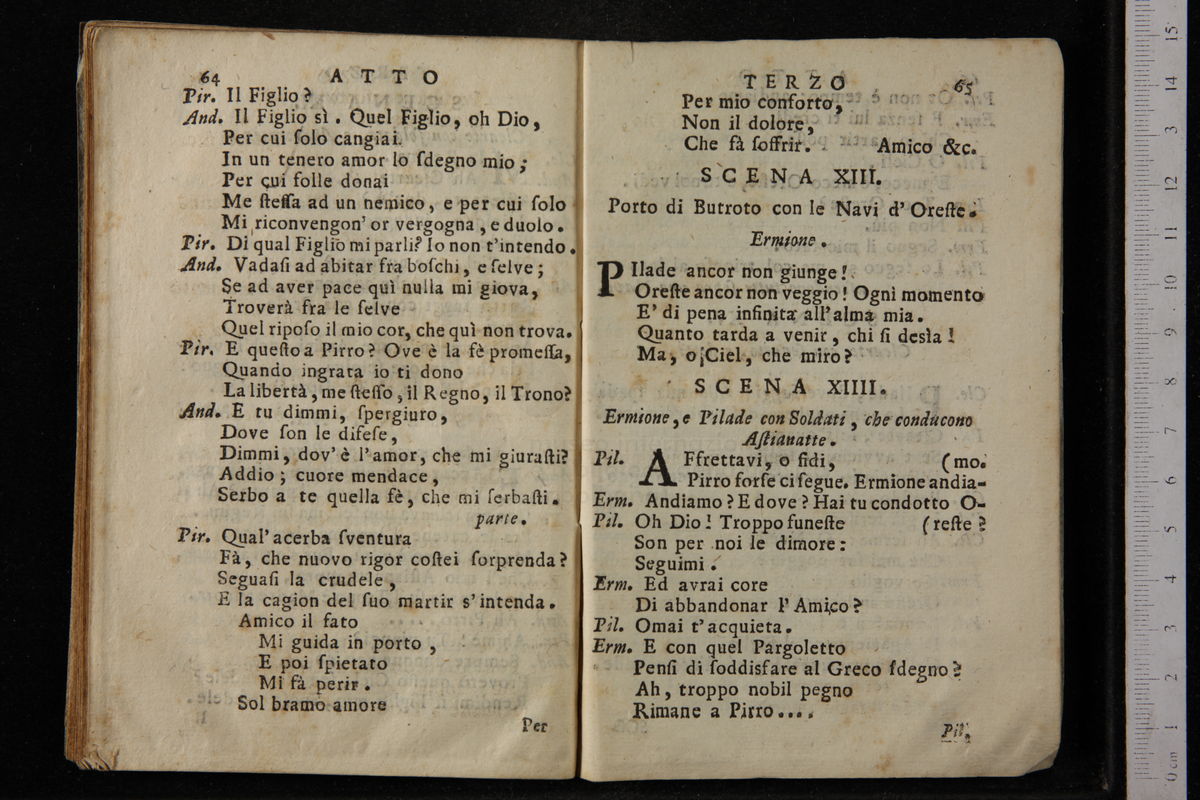 64 ATTO
Pir. Il Figlio?
And. Il Figlio sì. Quel Figlio, oh Dio,
Per cui ſolo cangiai
In un tenero amor lo ſdegno mio;
Per cui folle donai
Me ſteſſa ad un nemico, e per cui ſolo
Mi riconvengon' or vergogna, e duolo.
Pir. Di qual Figlio mi parli? Io non t'intendo.
And. Vadaſi ad abitar fra boſchi, e ſelve;
Se ad aver pace quì nulla mi giova,
Troverà fra le ſelve
Quel ripoſo il mio cor, che quì non trova.
Pir. E queſto a Pirro? Ove è la fè promeſſa,
Quando ingrata io ti dono
La libertà, me ſteſſo, il Regno, il Trono?
And. E tu dimmi, ſpergiuro,
Dove ſon le difeſe,
Dimmi, dov'è l'amor, che mi giuraſti?
Addio; cuore mendace,
Serbo a te quella fè, che mi ſerbaſti.
parte.
Pir. Qual' acerba ſventura
Fà, che nuovo rigor coſtei ſorprenda?
Seguaſi la crudele,
E la cagion del ſuo martir s'intenda.
Amico il fato
Mi guida in porto,
E poi ſpietato
Mi fà perir.
Sol bramò amore
Per
TERZO 65
Per mio conforto,
Non il dolore,
Che fà ſoffrir. Amico &c.
SCENA XIII.
Porto di Butroto con le Navi d'Oreſte.
Ermione.
PIlade ancor non giunge!
Oreſte ancor non veggio! Ogni momento
E' di pena infinita all'alma mia.
Quanto tarda a venir, chi ſi desìa!
Ma, o Ciel, che miro?
SCENA XIIII.
Ermione, e Pilade con Soldati, che conducono
Aſtianatte.
Pil. AFfrettavi, o fidi, (mo.
Pirro forſe ci ſegue. Ermione andia-
Erm. Andiamo? E dove? Hai tu condotto O-
Pil. Oh Dio! Troppo funeſte (reſte?
Son per noi le dimore:
Seguimi.
Erm. Ed avrai core
Di abbandonar l'Amico?
Pil. Omai t'acquieta.
Erm. E con quel Pargoletto
Penſi di ſoddisfare al Greco ſdegno?
Ah, troppo nobil pegno
Rimane a Pirro....
Pil.